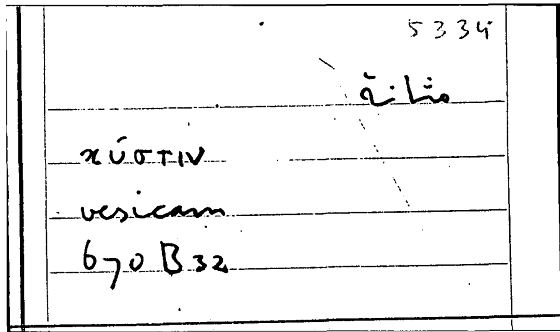 5334
مثانة
κύστιν
vesicam
670 B 32